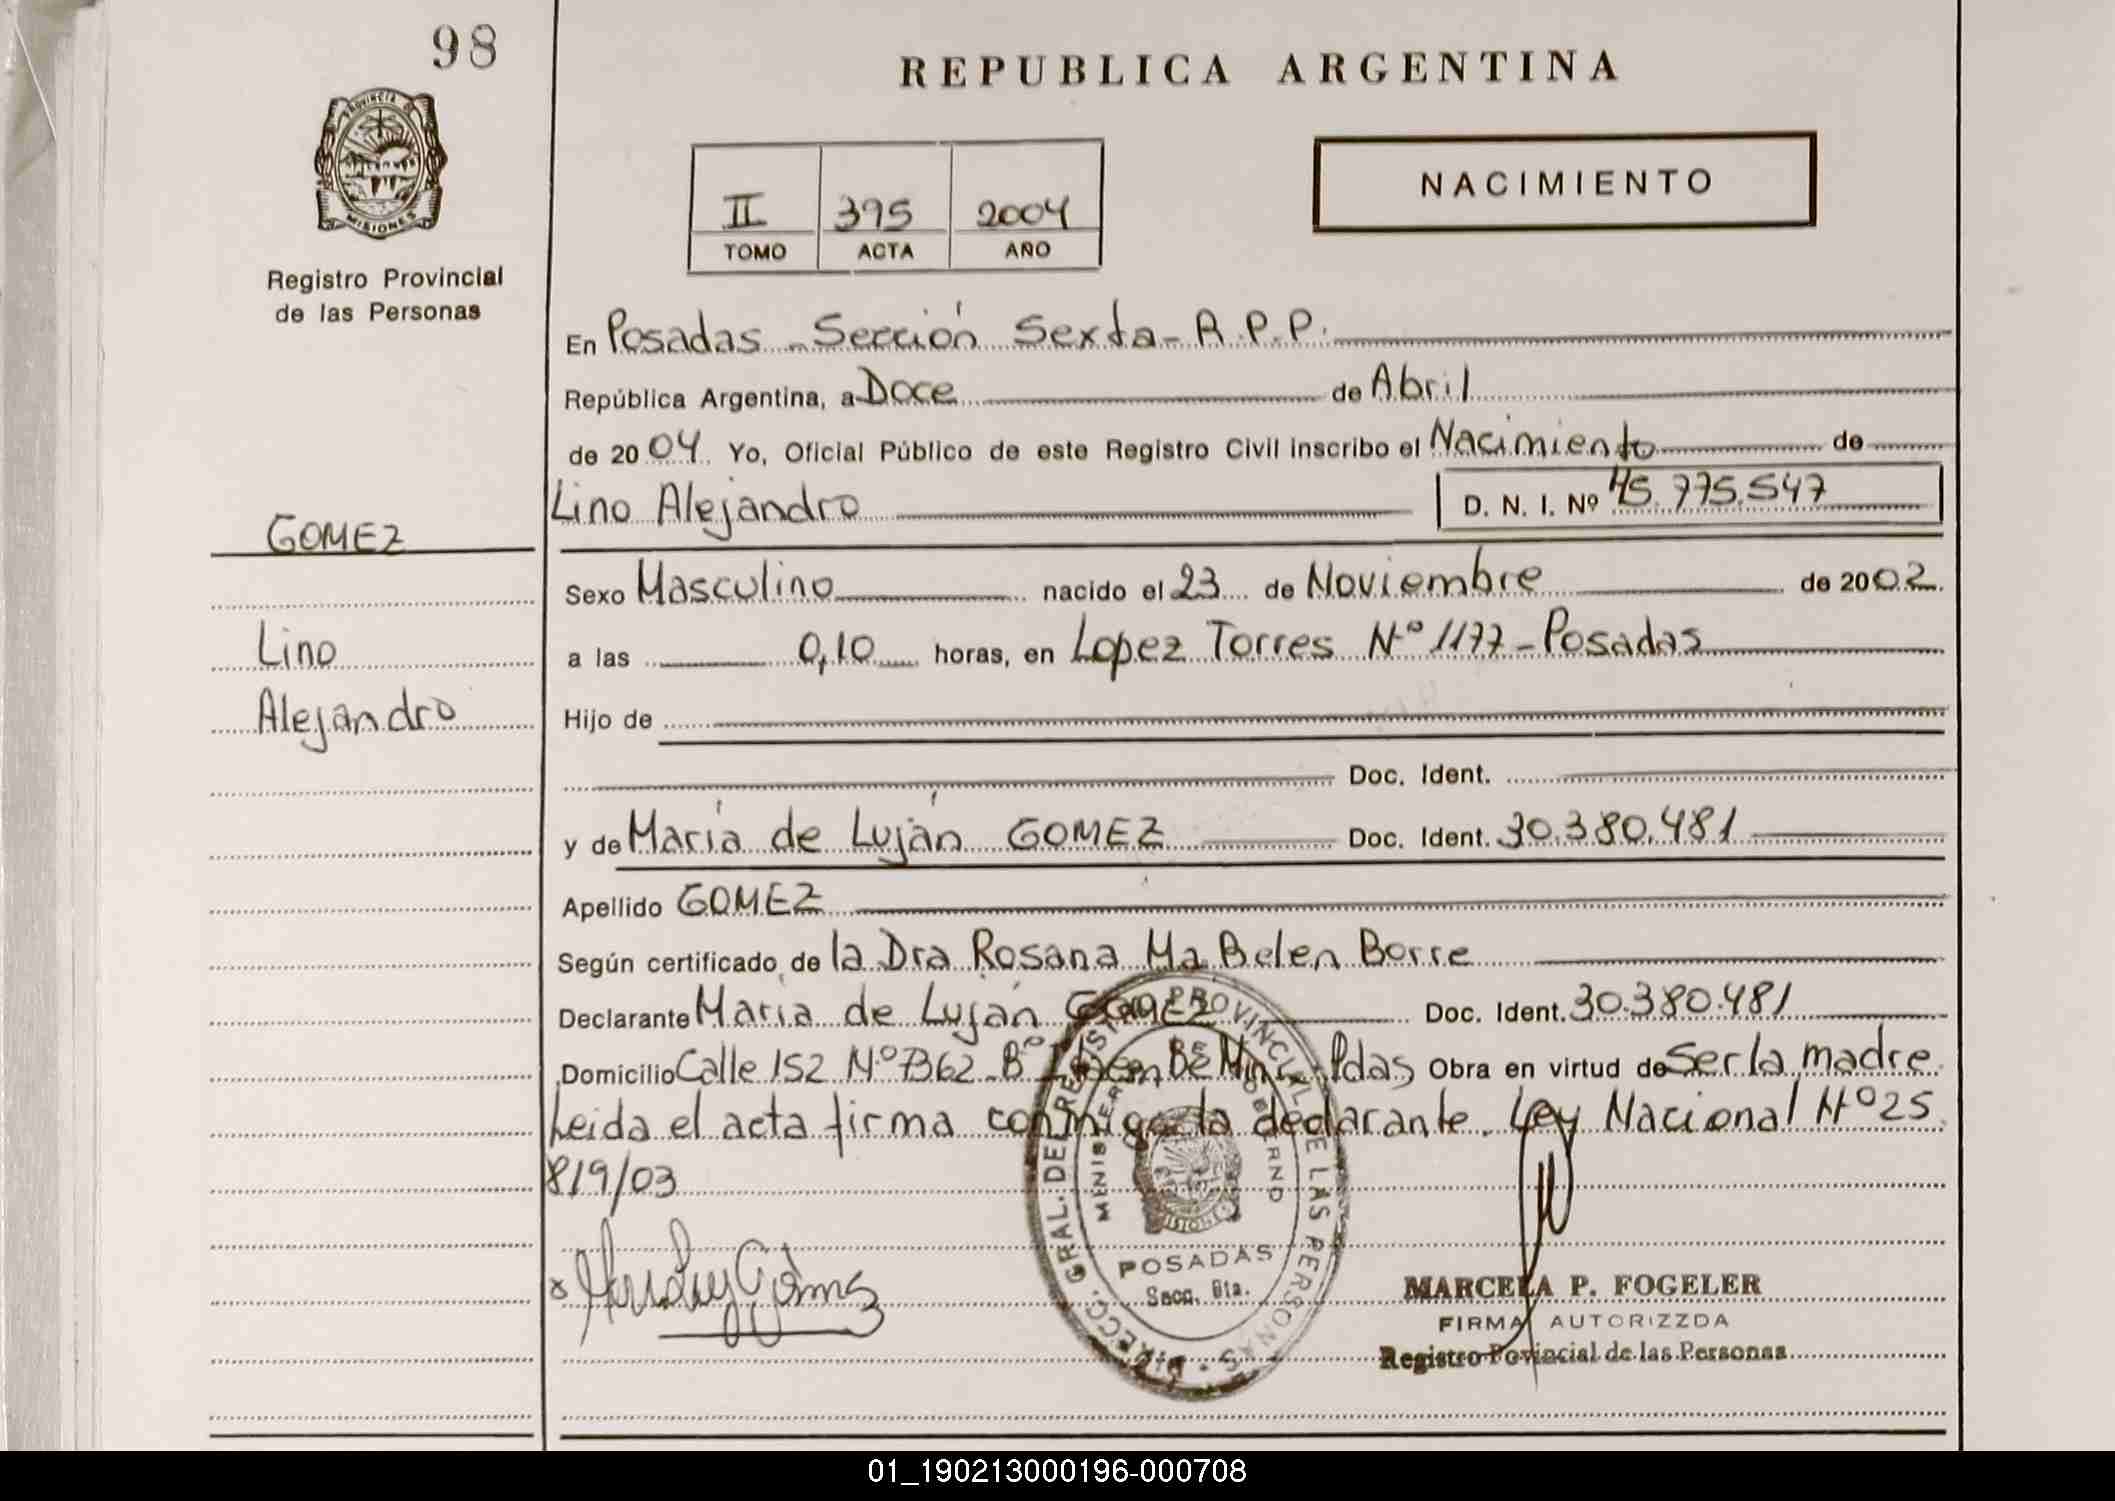 98
REPUBLICA ARGENTINA
PROVINCIA DE
MISIONES
Registro Provincial
de las Personas
NACIMIENTO
II 395 2004
TOMO ACTA AÑO
En Posadas - Sección Sexta - R.P.P.
República Argentina, a Doce de Abril
de 2004 Yo, Oficial Público de este Registro Civil inscribo el Nacimiento de
Lino Alejandro D. N. I. Nº 45.775.547
GOMEZ
Lino
Alejandro
Sexo Masculino nacido el 23 de Noviembre de 2002.
a las 0,10 horas, en Lopez Torres Nº 1177 - Posadas
Hijo de
Doc. Ident.
y de María de Luján GOMEZ Doc. Ident. 30.380.481
Apellido GOMEZ
Según certificado de la Dra Rosana Ma Belen Borre
Declarante María de Luján GOMEZ Doc. Ident. 30.380.481
Domicilio Calle 152 Nº 7362 - Bº Pdas Obra en virtud de Ser la madre.
Leida el acta firma conmigo la declarante. Ley Nacional Nº 25
819/03
DIRECC. GRAL. DEL REGISTRO PROVINCIAL DE LAS PERSONAS
POSADAS
Secc. 6ta.
MARCELA P. FOGELER
FIRMA AUTORIZZDA
Registro Povincial de las Personas
01_190213000196-000708